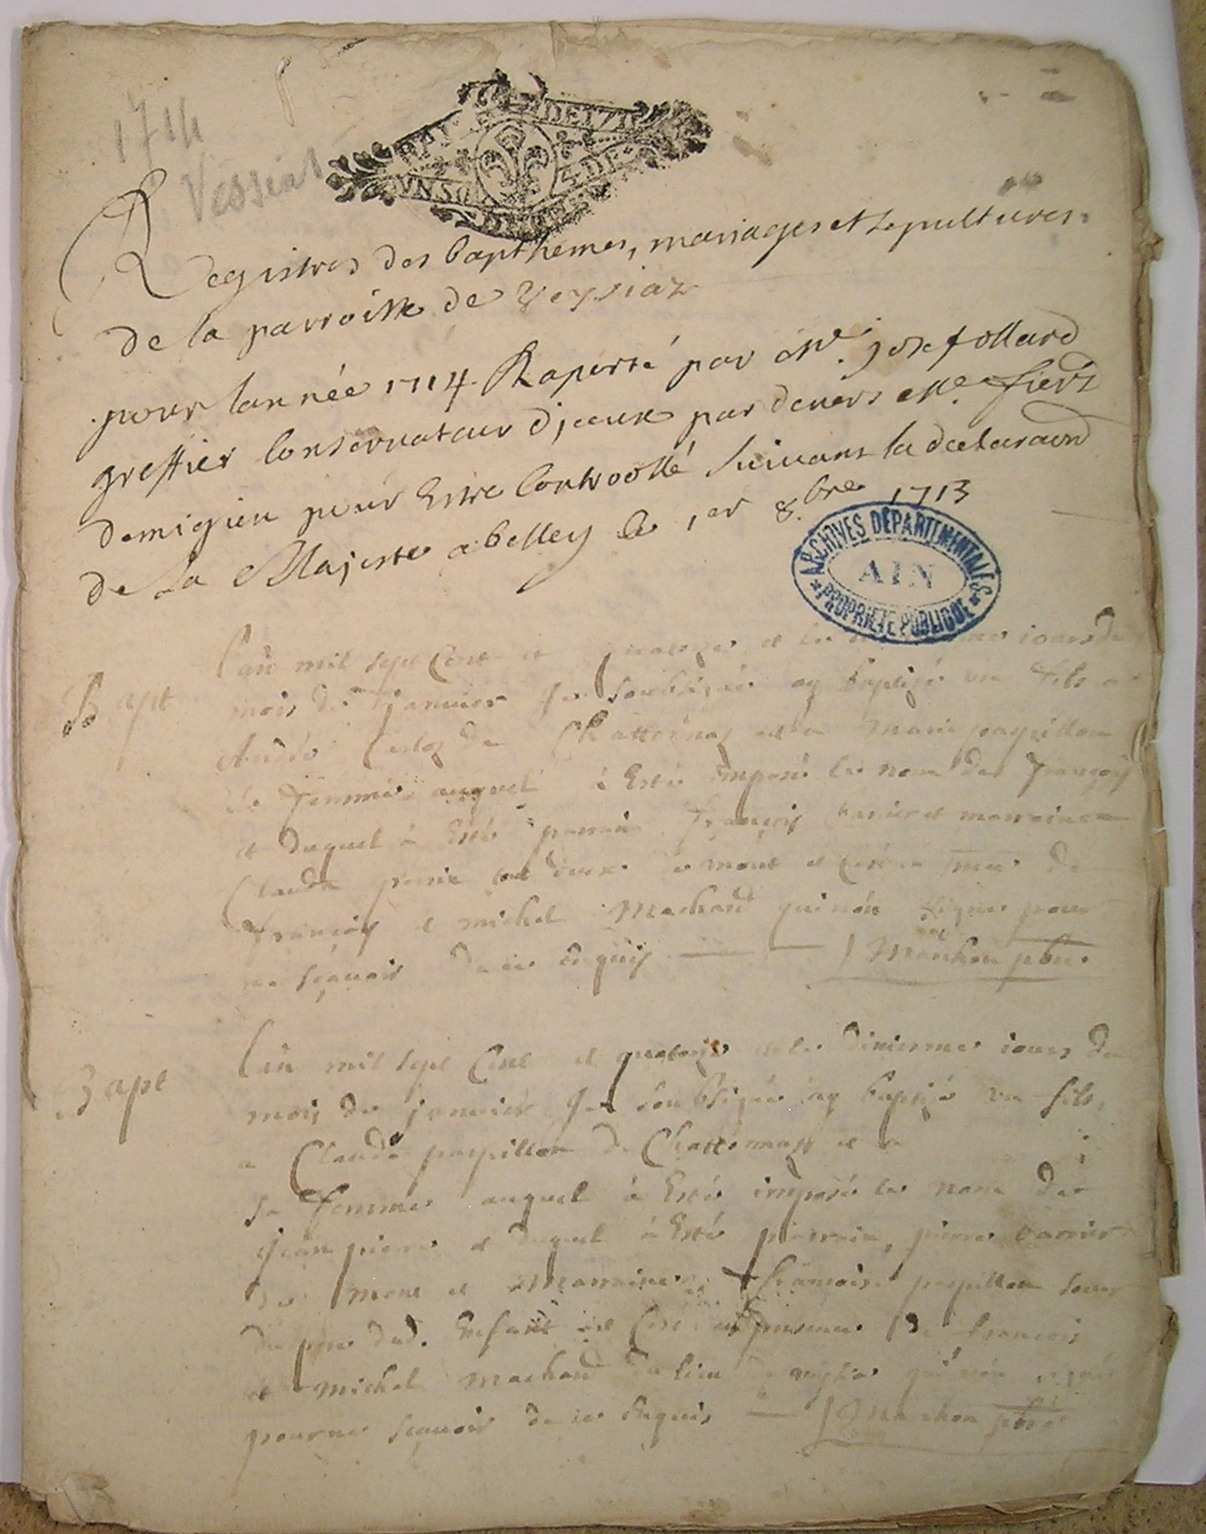 1714
Vessiat
DEUX
UN SOL DE
Registres des bapthemes, mariages et sepultures
de la parroisse de Veyziaz
pour lannée 1714. Raporté par Me. Josef ollard
greffier Conservateur d'jceux par devers Me.
demigieu pour Estre Controollé suivant la declaraōn
de Sa Majeste a belley le 1er 8.bre 1713
ARCHIVES DEPARTEMENTALES
AIN
PROPRIETE PUBLIQUE
Bapt
L'an mil sept Cent et quatorze et le jours du
mois de janvier Je soubsigné ay baptizé un fils a
de Chattonay et a Marie papillon
sa femme auquel à Esté imposé le nom de françois
et duquel à Esté parrain françois marraine
Claude de mont et de
françois et michel Machard qui nōn signé pour
ne sçavoir de ce Enquis Manhon pbre
Bapt
L'an mil sept Cent et quatorze et le diziesme jours du
mois de janvier Je soubsigné ay baptizé un fils,
a Claude papillon de Chattonnay et a
sa femme auquel à Esté imposé le nom de
Jean pierre et duquel à Esté parrain, pierre
de mont et Marraine francoise papillon soeur
du pere dud. Enfant en presence de francois
et Michel Machard du lieu de qui nōn signé
pour ne sçavoir de ce Enquis Manhon pbre